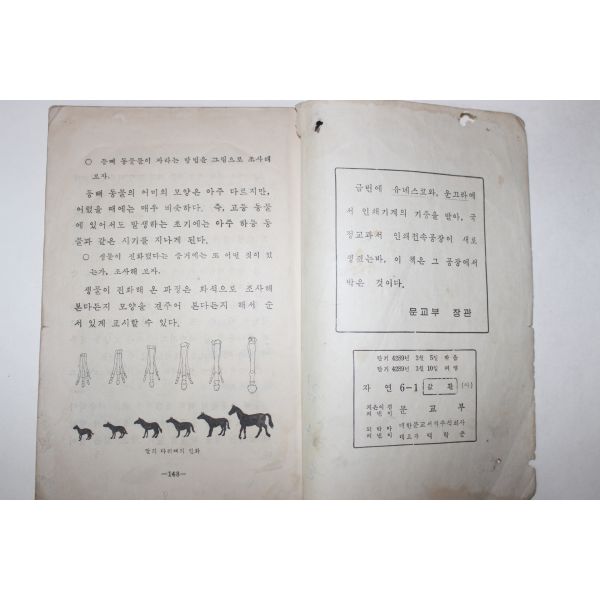 ○ 등뼈 동물들이 자라는 방법을 그림으로 조사해
보자.
등뼈 동물의 어미의 모양은 아주 다르지만,
어렸을 때에는 매우 비슷하다. 즉, 고등 동물
에 있어서도 발생하는 초기에는 아주 하등 동
물과 같은 시기를 지나게 된다.
○ 생물이 진화했다는 증거에는 또 어떤 것이 있
는가, 조사해 보자.
생물이 진화해 온 과정은 화석으로 조사해
본다든지 모양을 견주어 본다든지 해서 순
서 있게 표시할 수 있다.
말의 다리뼈의 진화
—148—
금번에 유네스코와, 운끄라에
서 인쇄기계의 기증을 받아, 국
정교과서 인쇄전속공장이 새로
생겼는바, 이 책은 그 공장에서
박은 것이다.
문교부 장관
단기 4289년 3월 5일 박음
단기 4289년 3월 10일 펴냄
자연 6-1 값 환
지은이 겸
펴낸이 문교부
대한문교서적주식회사
대표자